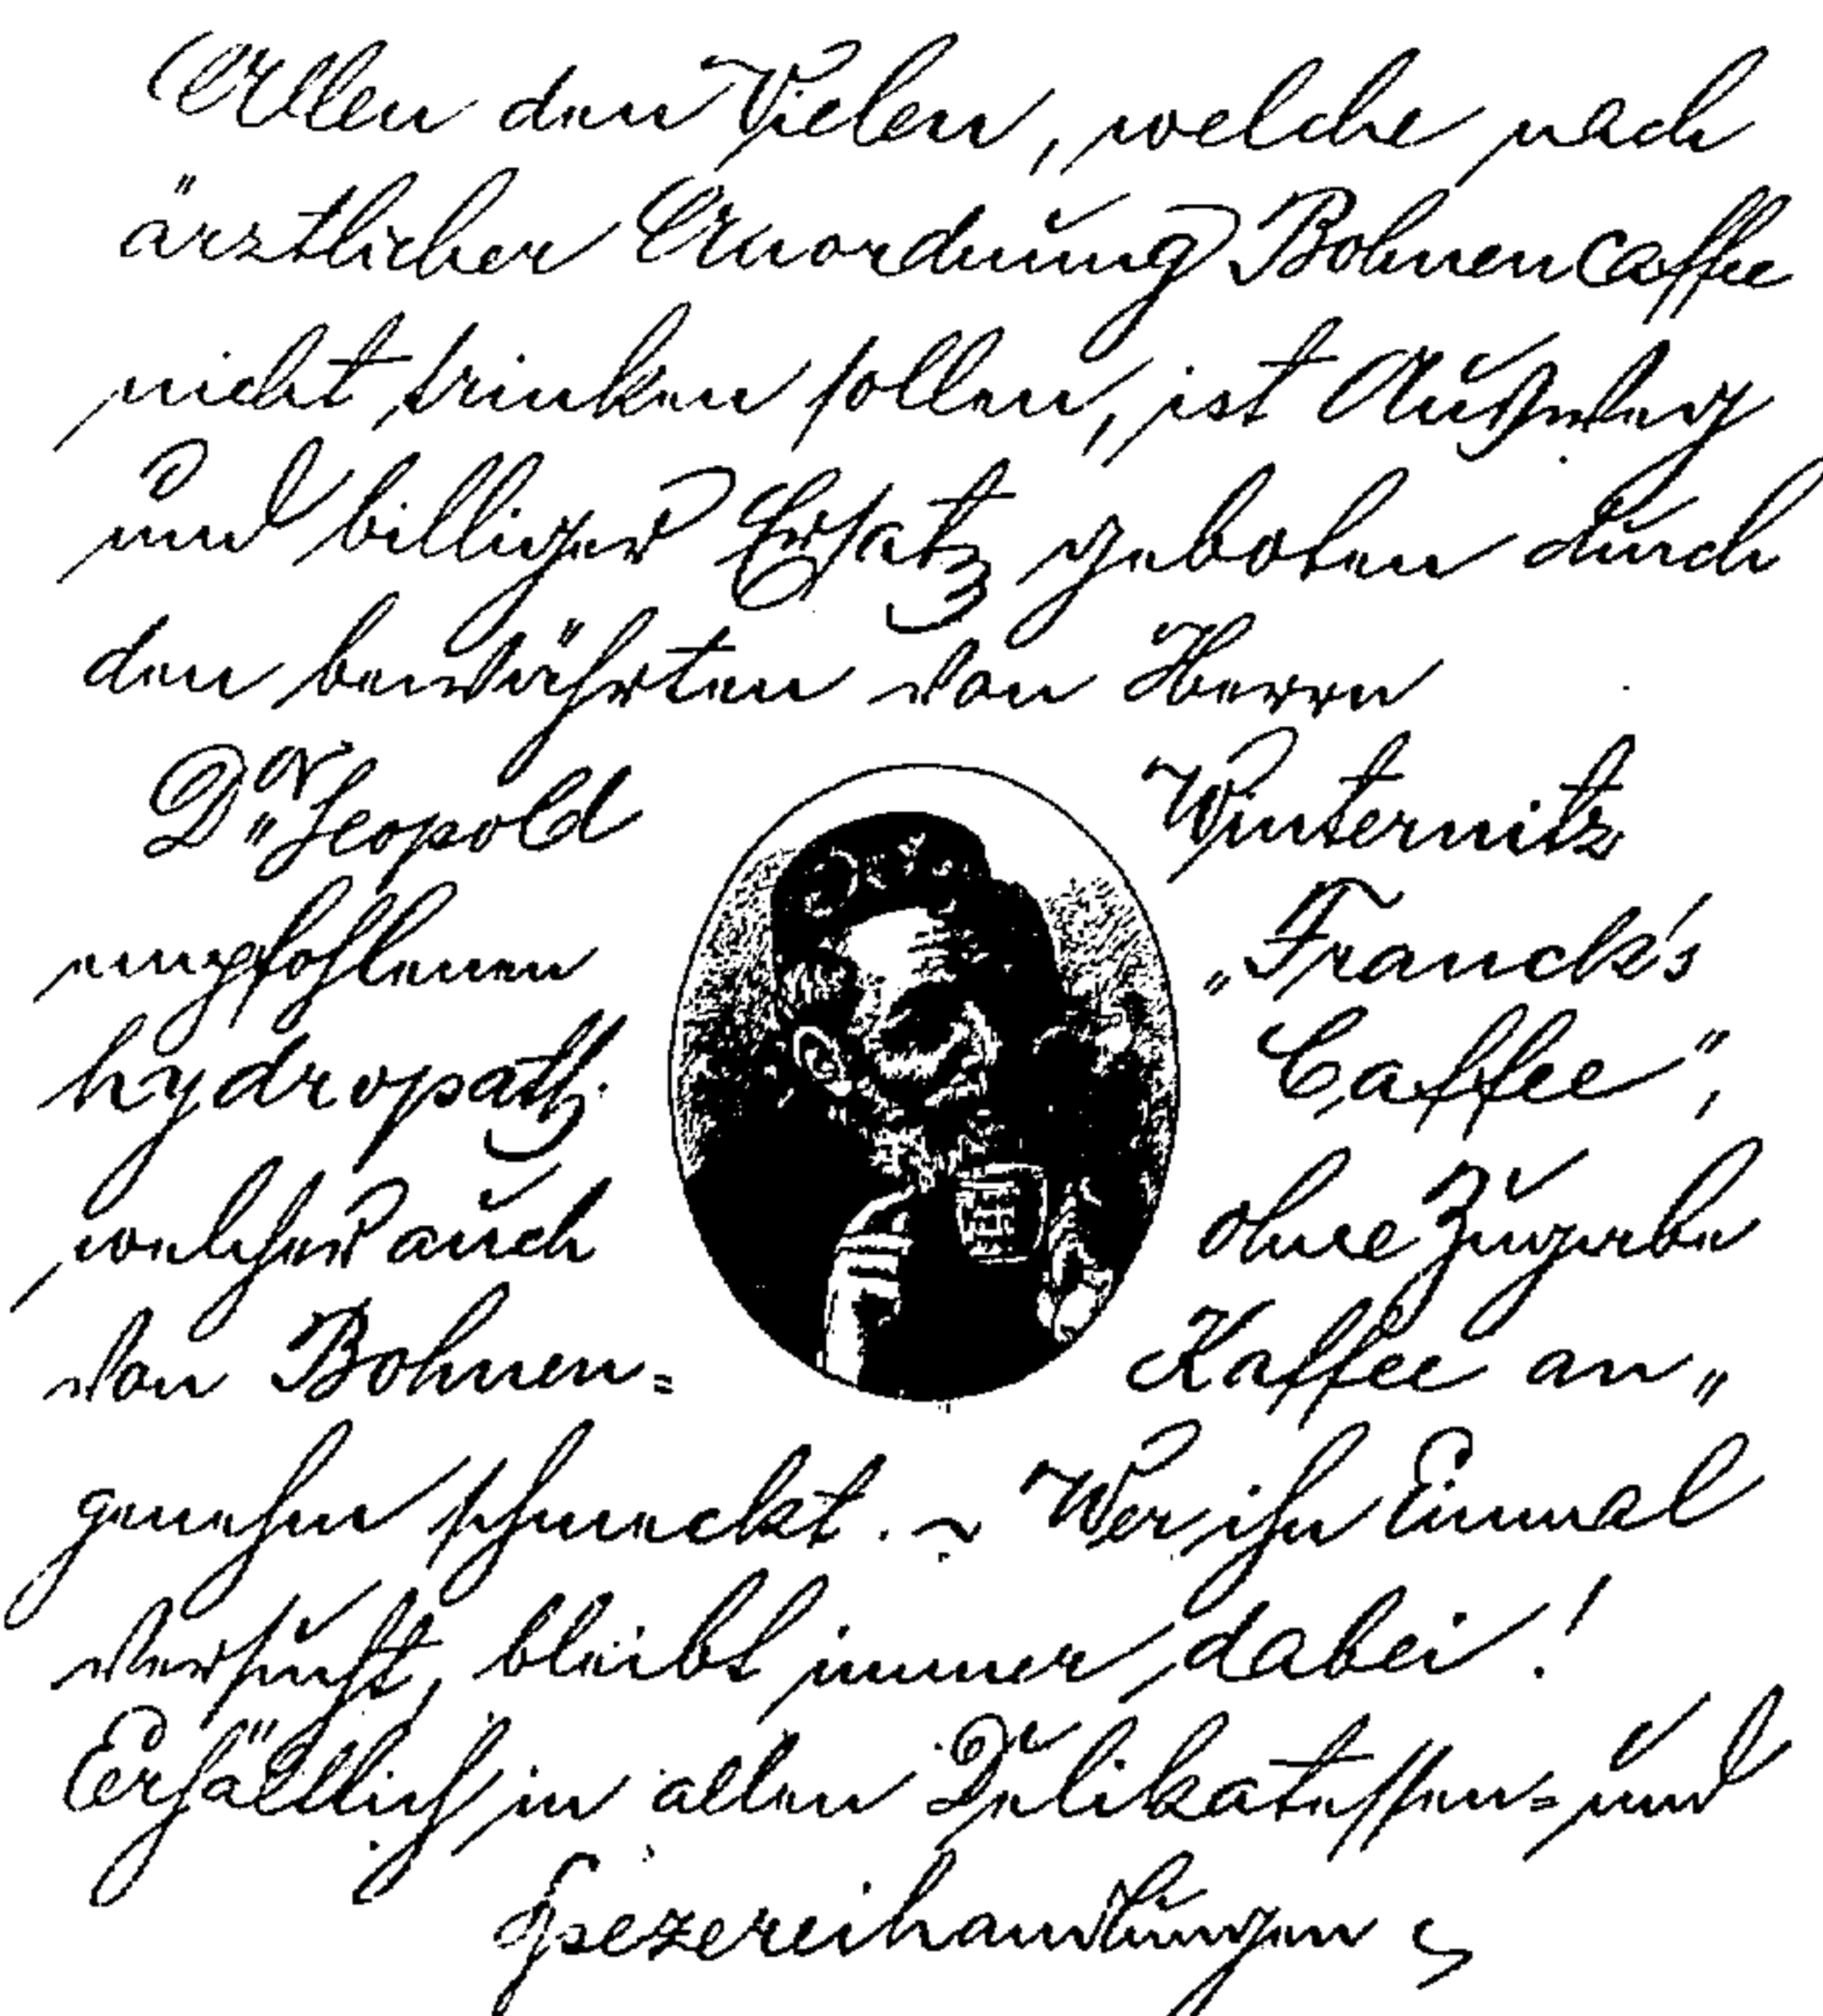 Allen den Vielen, welche nach
ärztlicher Anordnung Bohnencaffee
nicht trinken sollen, ist Ausweg
und billiger Ersatz geboten durch
den bewährten von Herrn
Dr. Leopold Winternitz
empfohlenen „Franck's
hydropath. Caffee",
welcher auch ohne Zugabe
von Bohnen= Kaffee an„
genehm schmeckt. ~ Wer ihn Einmal
versucht, bleibt immer dabei!
Erhältlich in allen Delikatessen= und
Spezereihandlungen